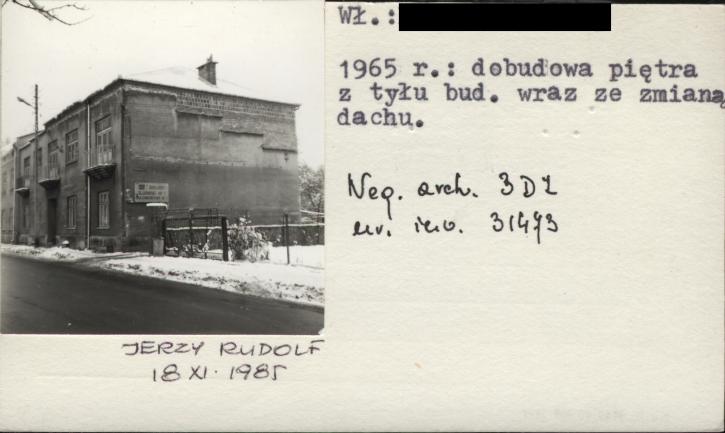 Wł.:
1965 r.: dobudowa piętra
z tyłu bud. wraz ze zmianą
dachu.
Neg. arch. 3D1
nr. inw. 31493
JERZY RUDOLF
18 XI. 1985